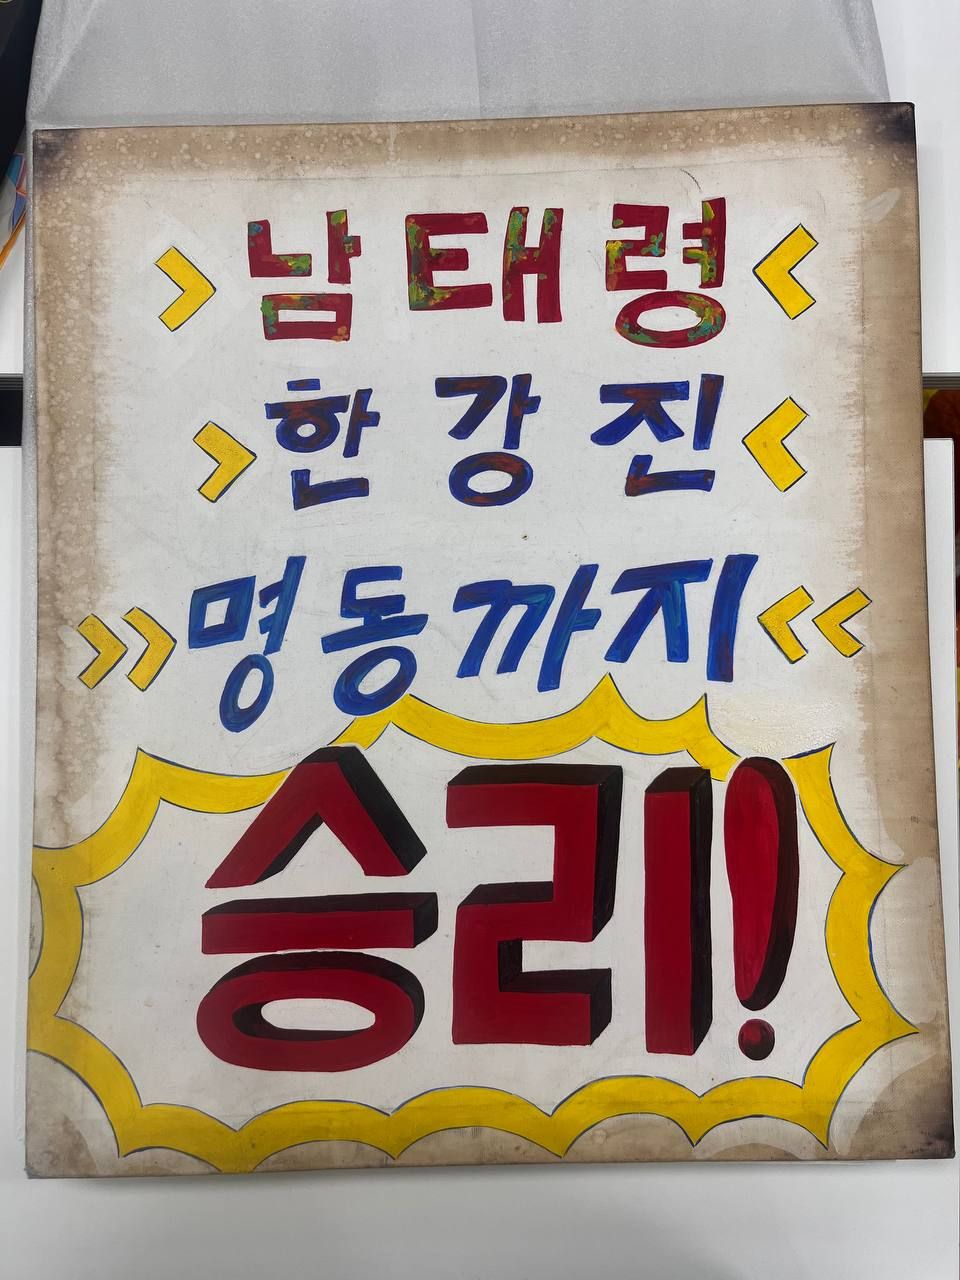 > 남태령 <
> 한강진 <
>> 명동까지 <<
승리!